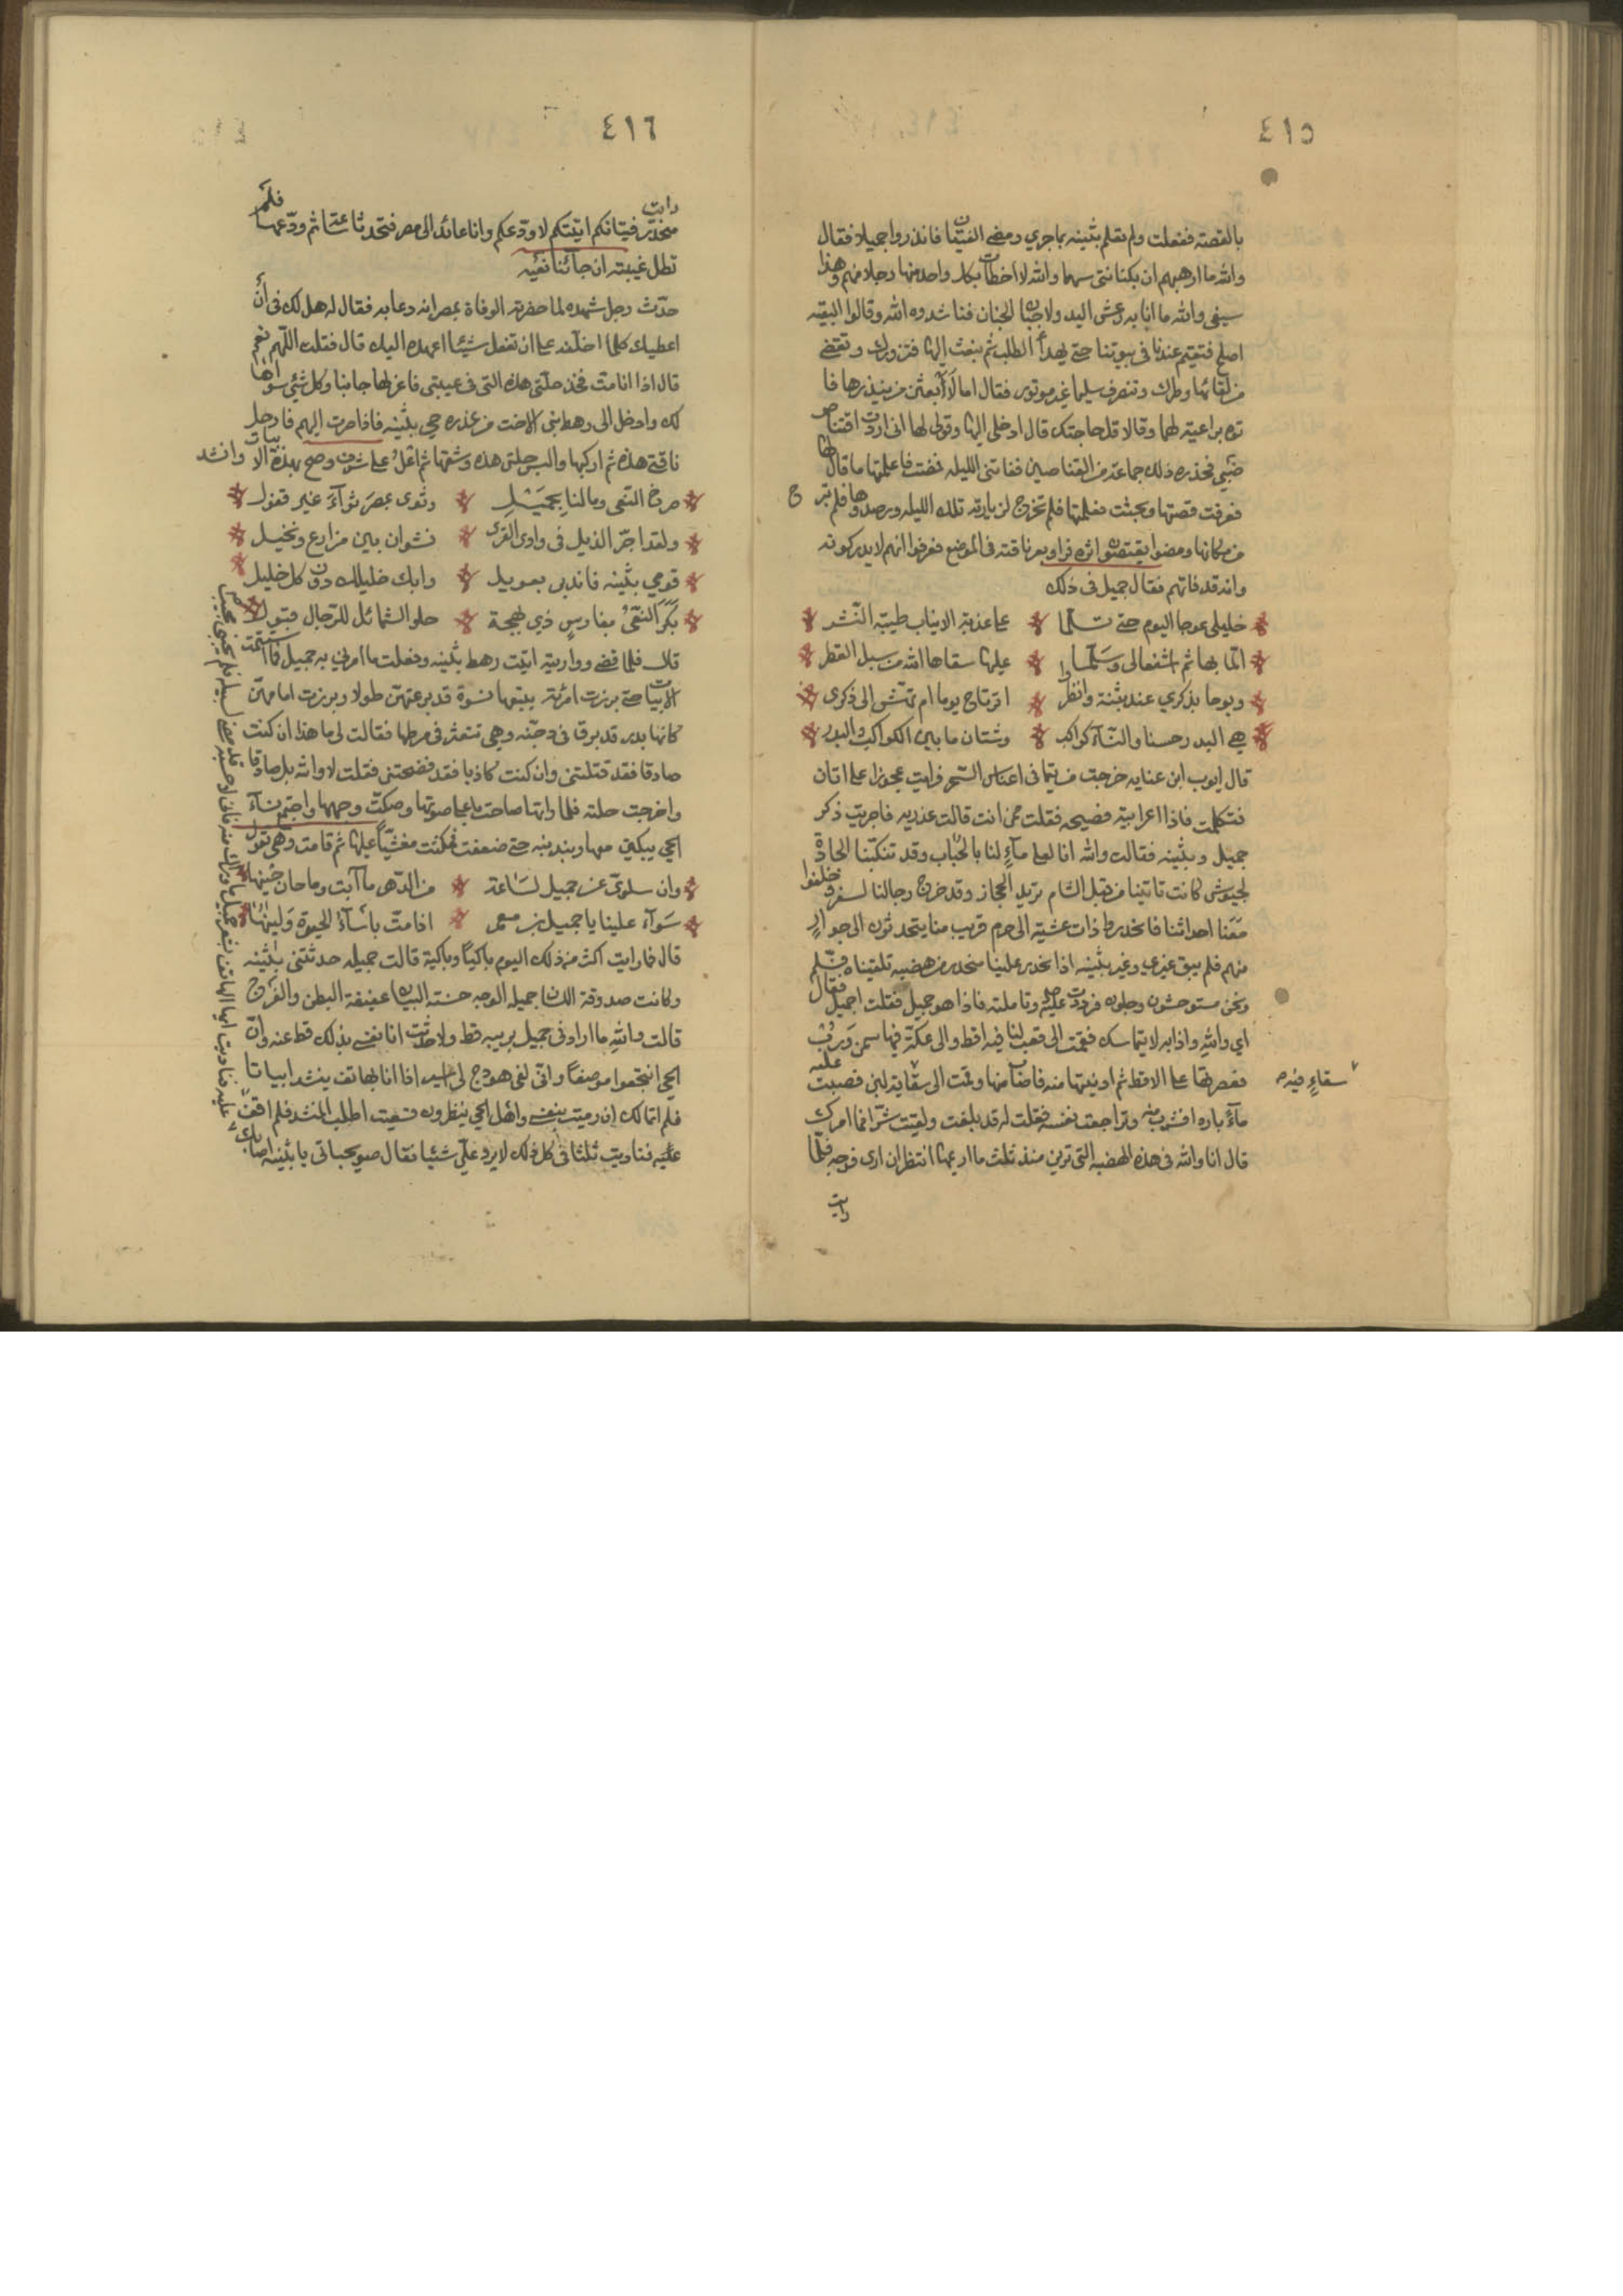 ٤١٥
بالقصة ففعلت ولم تعلم بثينه بما جري ومضي الفتيان فانذروا جميلا فقال
والله ما ارهبهم ان بكنانتي سهما والله لا اخطات بكل واحد منها رجلا منهم وهذا
سيفي والله ما انا به رعش اليد ولا جبان الجنان فناشدوه الله وقالوا البقيه
اصلح فتقيم عندنا في بيوتنا حتي يهدأ الطلب ثم نبعث اليها فتزورك وتقضي
من لقائها وطرك وتنصرف سليما غير موتور فقال اما لا أبعثن من ينذرها فا
توه براعية لهما وقالا قل حاجتك قال ادخلي اليها وقولي لها اني اردت اقتناص
ضبي فحذره ذلك جماعة من القناصين ففاتني الليله فمضت فاعلمتها ما قال لها
فعرفت قصتها وبحثت فعلمتها فلم تخرج لزيارته تلك الليله ورصدوها فلم تبرح
من مكانها ومضوا يقتصون اثره فراو بعر ناقته في الموضع فعرفوا انهم لا يدركونه
وانه قد فاتهم فقال جميل في ذلك
خليلي عوجا اليوم حتي تسلما علي عذبة الانياب طيبة النشر
الما بها ثم اشفعا لي وسلما عليها سقاها الله من سبل القطر
وبوحا بذكري عند بثنة وانظرا اترتاح يوما ام تهش الى ذكري
هي البدر حسنا والنسآء كواكب وشتان ما بين الكواكب والبدر
قال ايوب ابن عنايه خرجت من تيما في اغباس السحر فرايت عجوزا علي اتان
فتكلمت فاذا اعرابية فصيحه فقلت ممن انت قالت عذريه فاجريت ذكر
جميل وبثينه فقالت والله انا لعلي مآءٍ لنا بالجناب وقد تنكبنا الجادة
لجيوش كانت تاتينا من قبل الشام تريد الحجاز وقد خرج رجالنا لسفر وخلفوا
معنا احداثنا فانحدروا ذات عشية الى صرم قريب منا يتحدثون الى جوارٍ
منهم فلم يبق غيري وغير بثينه اذا انحدر علينا منحدر من هضبه تلقيناه فسلم
ونحن مستوحشون وجلون فرددت عليه وتاملته فاذا هو جميل فقلت اجميل فقال
اي والله واذا به لا يتماسك فقمت الى قعب لنا فيه اقط والى عكة فيها سمن ورُبّ
فعصرتها علي الاقط ثم ادنيتها منه فاصاب منها وقمت الى سقاية لبن فصببت عليه
سقاءٍ فيه
مآءً بارد افشرب منه وتراجعت نفسه فقلت له قد بلغت ولقيت شرا فما امرك
قال انا والله في هذه الهضبه التي ترين منذ ثلث ما اريمها انتظر ان ارى فرجه فلمّا
رايت
٤١٦
رايت
منحدر فتيانكم اتيتكم لاودعكم وانا عائد الى مصر فتحدثنا ساعة ثم ودعها فلم
تطل غيبته ان جائنا نعيّه
حدّث رجل شهده لما حضرته الوفاة بمصر انه دعا به فقال له هل لك في ان
اعطيك كلما اخلفه علي ان تفعل شيئا اعهده اليك قال فقلت اللهم نعم
قال اذا انا مت فخذ حلتي هذه التي في عيبتي فاعزلها جانبا وكل شئي سواها
لك وادخل الى رهط بني الاخت من عذره حي بثينه فاذا صرت اليهم فارحل
ناقتي هذه ثم اركبها والبس حلتي هذه وشقها ثم اعلُ علي شرف وصح بهذه الابيات وانشد
صرخ النعي وما لنا بجميل وثوى بمصر ثوآءَ غير قفول
ولقد اجرّ الذيل في وادي القرى نشوان بين مزارع ونخيل
قومي بثينه فاندبي بعويل وابك خليلك دون كل خليل
بكر النعيُّ بفارسٍ ذي بهجة حلو الشمائل للرجال قبول
قال فلما قضي وواريته اتيت رهط بثينه وفعلت ما امرني به جميل فما استتمت
الابيات حتي برزت امرئة يتبعها نسوة قد برعتهن طولا وبرزت امامهن
كانها بدر قد برق في دجنه وهي تتعثر في مرطها فقالت لي ما هذا ان كنت
صادقا فقد قتلتني وان كنت كاذبا فقد فضحتني فقلت لا والله بل صادقا
واخرجت حلته فلما راتها صاحت باعلي صوتها وصكت وجهها واجتمع نسآء
الحي يبكين معها ويندبنه حتي ضعفت فمكثت مغشيّاً عليها ثم قامت وهي تقول
وان سلويّ عن جميل لساعة من الدهر ما آبت وما حان حينها
سوآء علينا يا جميل بن معمر اذا متّ بأسآء الحيوة ولينها
قال فما رايت اكثر من ذلك اليوم باكياً وباكية قالت جميله حدثتني بثينه
وكانت صدوقة اللسان جميله الوجه حسنة البيان عفيفة البطن والفرج
قالت والله ما ارادني جميل بريبه قط ولا حدثت انا نفسي بذلك قط عنه وانّ
الحي انتجعوا موضعاً واني لفي هودج لي اسير اذا انا بهاتف ينشد ابياتا
فلم اتمالك ان رميت بنفسي واهل الحي ينظرون فبقيت اطلب المنشد فلم اقف
عليه فناديت ايها الهاتف بشعر جميل ما وراك منه فاني احسبه قد مضي لسبيله فلم يجبني مجيب
عليه فناديت ثلثا في كل ذلك لا يرد علي شيئا فقال صويحباتي يا بثينه اصابك